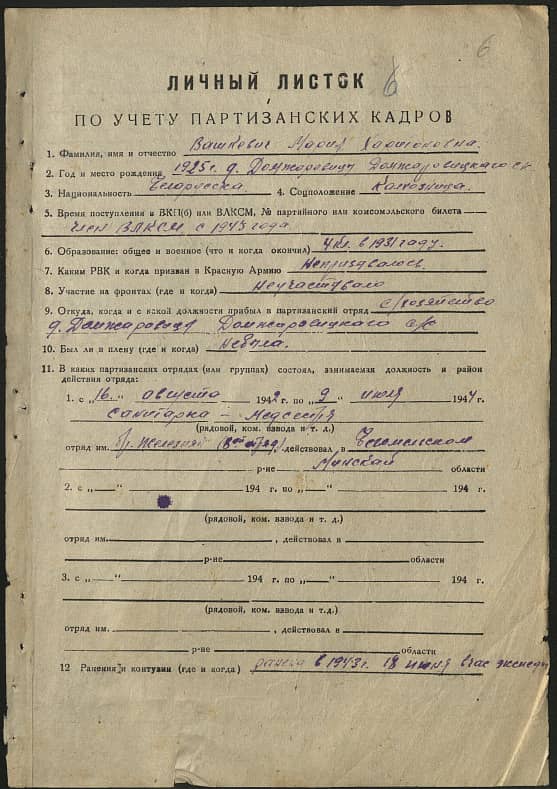 6
ЛИЧНЫЙ ЛИСТОК 6
ПО УЧЕТУ ПАРТИЗАНСКИХ КАДРОВ
1. Фамилия, имя и отчество Вашкевич Мария
2. Год и место рождения 1925 г. д. Домжаровицкого с/с
3. Национальность Белорусска 4. Соцположение Колхозница.
5. Время поступления в ВКП(б) или ВЛКСМ, № партийного или комсомольского билета
член ВЛКСМ с 1943 года
6. Образование: общее и военное (что и когда окончил) 4 кл. в 1931 году.
7. Каким РВК и когда призван в Красную Армию Непризвалось.
8. Участие на фронтах (где и когда) Неучаствувало
9. Откуда, когда и с кской должности прибыл в партизанский отряд с/хозяйство
д. Домжаровицкого с/с
10. Был ли в плену (где и когда) Небыла.
11. В каких партизанских отрядах (или группах) состоял, занимаемая должность и район
действия отряда:
1. с „16.“ августа 1942 г. по „9“ июля 1944 г.
Санитарка – Медсестра
(рядовой, ком. взвода и т. д.)
отряд им. бр. Железняк действовал в Бегомльском
р-не Минской области
2. с „—“ 194 г. по „—“ 194 г.
(рядовой, ком. взвода и т. д.)
отряд им. , действовал в
р-не области
3. с „—“ 194 г. по „—“ 194 г.
(рядовой, ком. взвода и т.д.)
отряд им. , действовал в
р-не области
12 Ранения и контузии (где и когда) ранена в 1943 г. 18 июня вчас экспеди